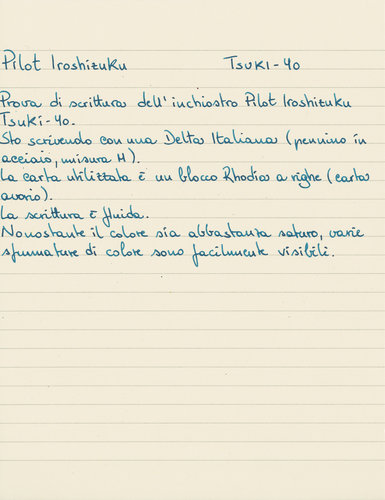 Pilot Iroshizuku Tsuki-yo
Prova di scrittura dell'inchiostro Pilot Iroshizuku
Tsuki-yo.
Sto scrivendo con una Delta Italiana (pennino in
acciaio, misura M).
La carta utilizzata è un blocco Rhodia a righe (carta
avorio).
La scrittura è fluida.
Nonostante il colore sia abbastanza saturo, varie
sfumature di colore sono facilmente visibili.